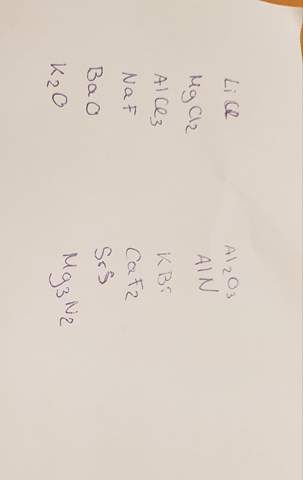 LiCl
MgCl₂
AlCl₃
NaF
BaO
K₂O
Al₂O₃
AlN
KBr
CaF₂
SrS
Mg₃N₂